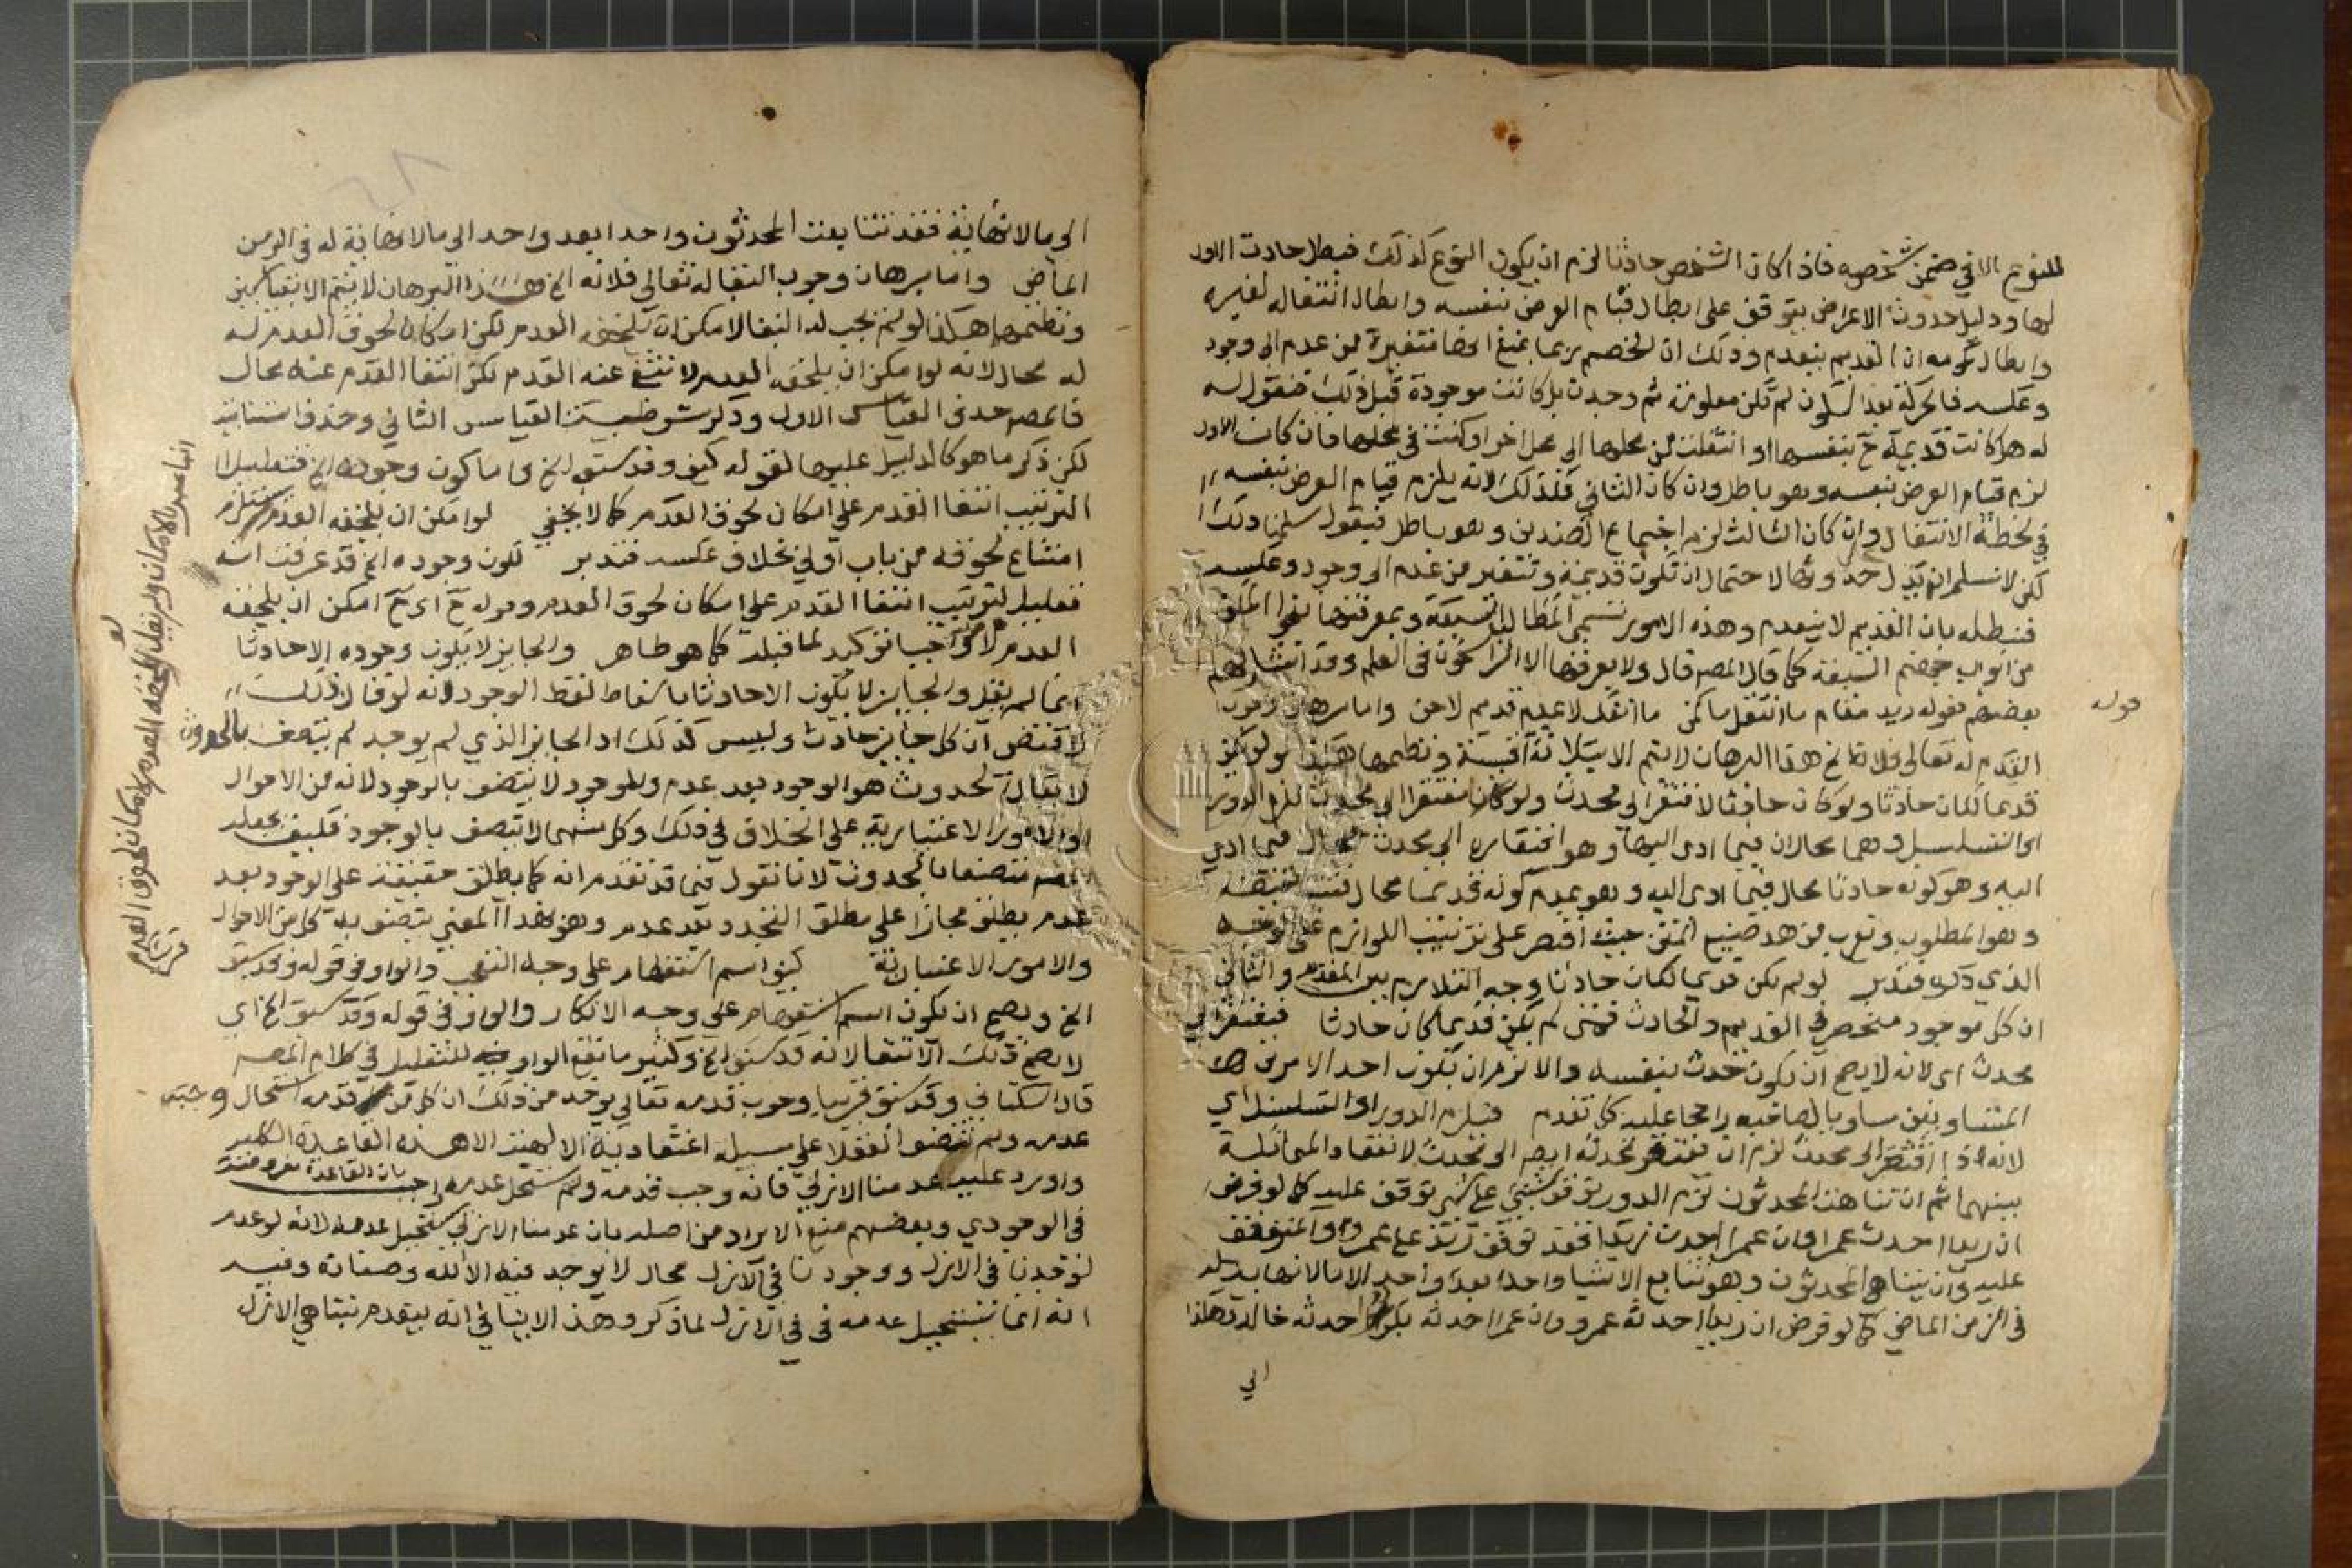 للنوع الا في ضمن شخصه فاذا كان الشخص حادثا لزم ان يكون النوع كذلك فبطل حادث الاول
لها ودليل حدوث الاعراض يتوقف على ابطال قيام العرض بنفسه وابطال انتقاله لغيره
وابطال كمونه ان القديم ينعدم وذلك ان الخصم ربما يمنع ايضا متغيرة من عدم الى وجود
وعكسه فالحركة بعد السكون لم تكن معلومة ثم وجدت بل كانت موجودة قبل ذلك فنقول له
له هل كانت قديمة ح بنفسها او انتقلت من محلها الى محل اخر او كمنت في محلها فان كان الاول
لزم قيام العرض بنفسه وهو باطل وان كان الثاني فكذلك لانه يلزم قيام العرض بنفسه
في لحظة الانتقال وان كان الثالث لزم اجتماع الضدين وهو باطل فيقول سلمنا ذلك
لكن لا نسلم انه يدل حدوثها لاحتمال ان تكون قديمة وتتغير من عدم الى وجود وعكسه
فنبطله بان القديم لا ينعدم وهذه الامور تسمى المطالب السبعة وبمعرفتها ينجوا المكلف
من ابواب جهنم السبعة كما قال المصه قال ولا يعرفها الا الراسخون في العلم وقد اشار لهم
بعضهم بقوله زيد مقام ما انتقل ما كمن ما انفك لا عدم قديم لاحن واما برهان وجوب
قوله
القدم له تعالى فلانه الخ هذا البرهان لا يتم الا بثلاثة اقيسة ونظمها هكذا لو لم يكن
قديما لكان حادثا ولو كان حادثا لافتقر الى محدث ولو كان مفتقرا الى محدث للزم الدور
او التسلسل وهما محالان فما ادى اليهما وهو افتقاره الى محدث محال فما ادى
اليه وهو كونه حادثا محال فما ادى اليه وهو عدم كونه قديما محال فثبت نقيضه
وهو المطلوب وقرب من هذا صنيع المتن حيث اقتصر على ترتيب اللوازم على الوجه
الذي ذكره فتدبر لو لم يكن قديما لكان حادثا وجه التلازم بين المقدم والتالي
ان كل موجود منحصر في القديم والحادث فمتى لم يكن قديما كان حادثا فيفتقر الى
محدث اي لانه لا يصح ان يكون حدث بنفسه والا لزم ان يكون احد الامرين
المتساويين مساويا لصاحبه راجحا عليه كما تقدم فيلزم الدور او التسلسل اي
لانه اذا افتقر الى محدث لزم ان يفتقر محدثه ايضا الى محدث لانعقاد المماثلة
بينهما ثم ان تناهت المحدثون لزم الدور توقف شيء على شيء توقف عليه كما لو فرض
ان زيدا احدث عمرا وان عمرا احدث زيدا فقد توقف زيد على عمرو المتوقف
عليه وان يتناهى المحدثون وهو تتابع الاشيا واحدا بعد واحد الى ما لا نهاية له
في الزمن الماضي كما لو فرض ان زيدا احدثه عمرو وان عمرا احدثه بكر احدثه خالد وهكذا
الي
الى ما لا نهاية فقد تتابعت المحدثون واحدا بعد واحد الى ما لا نهاية له في الزمن
الماضى واما برهان وجوب البقا له تعالى فلانه الخ هذا البرهان لا يتم الا بقياسين
ونظمهما هكذا لو لم يجب له البقا لامكن ان يلحقه العدم لكن امكان لحوق العدم له
له محال لانه لو امكن ان يلحقه العدم لانتفى عنه القدم لكن انتفا القدم عنه محال
فالمصه حذف القياس الاول وذكر شرطية القياس الثاني وحذف استثنائيته
لكن ذكر ما هو كالدليل عليها بقوله كيف وقد سبق الخ واما كون وجوده الخ فتعليل
الترتيب انتفا القدم على امكان لحوق العدم كما لا يخفي لو امكن ان يلحقه العدم
امتناع لحوقه من باب اولى بخلاف عكسه فتدبر لكون وجوده الخ قد عرفت انه
تعليل لترتيب انتفا القدم على امكان لحوق العدم وقوله ح اي ح امكن ان يلحقه
العدم لا واجبا توكيد لما قبله كما هو ظاهر والجايز لا يكون وجوده الا حادثا
انما لم يقل والجايز لا يكون الا حادثا باسقاط لفظ الوجود لانه لو قال ذلك
لاقتضى ان كل جايز حادث وليس كذلك اذ الجايز الذي لم يوجد لم يتصف بالحدوث
لا يقال الحدوث هو الوجود بعد عدم والموجود لا يتصف بالوجود لانه من الاحوال
او الامور الاعتبارية على الخلاف في ذلك وكل منهما لا يتصف بالوجود فكيف يجعله
متصفا بالحدوث لانا نقول فيما قد تقدم انه كما يطلق حقيقة على الوجود بعد
عدم يطلق مجازا على مطلق التجدد بعد عدم وهو بهذا المعني يتصف به كل من الاحوال
والامور الاعتبارية كيف اسم استفهام على وجه التعجب والواو في قوله وقد سبق
الخ ويصح ان يكون اسم استفهام على وجه الانكار والواو في قوله وقد سبق الخ اي
لا يصح ذلك الانتفا لانه قد سبق الخ وكثيرا ما تقع الواو للتعليل في كلام المصه
قال السكتاني وقد سبق قريبا وجوب قدمه تعالى يوخذ من ذلك ان كل من قدمه استحال
عدمه ولم تتفق العقلا على مسيلة اعتقادية الالهيت الا هذه القاعدة الكلية
واورد عليه عدمنا الازلي فانه وجب قدمه ولم يستحل عدمه واجيب بان القاعدة مفروضة
في الوجودي وبعضهم منع الايراد من اصله بان عدمنا الازلي يستحيل عدمه لانه لو عدم
لوجدنا في الازل ووجودنا في الازل محال لا يوجد فيه الا الله وصفاته وفيه
انه انما يستحيل عدمه في الازل لما ذكر وهذا لا ينافي انه ينعدم بتناهي الازل